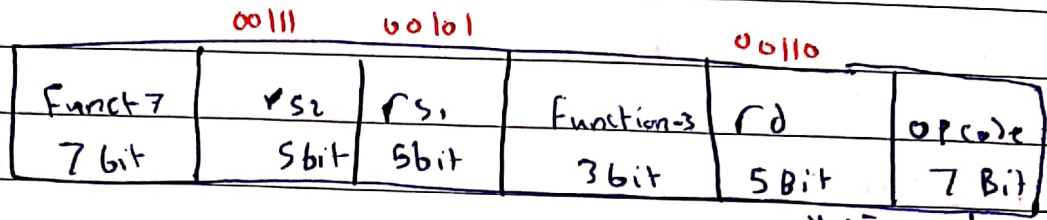 00111 00101 00110
Funct7 rs2 rs1 Function-3 rd opcode
7 bit 5bit 5bit 3bit 5Bit 7 Bit